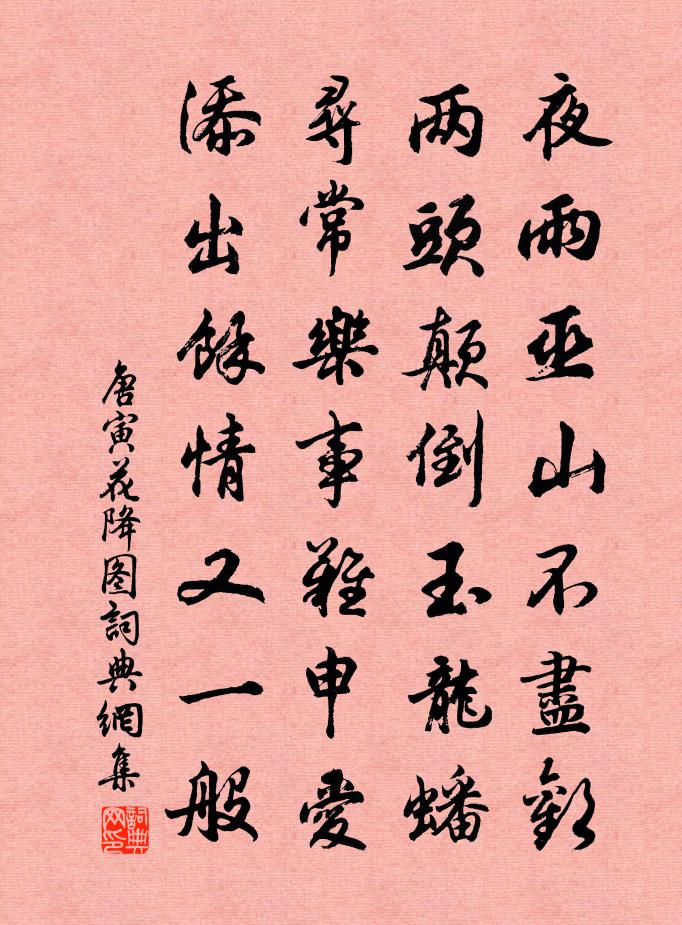 夜雨巫山不盡歡
两頭颠倒玉龍蟠
尋常樂事難申愛
添出餘情又一般
唐寅花降图詞典網集
詞典网印